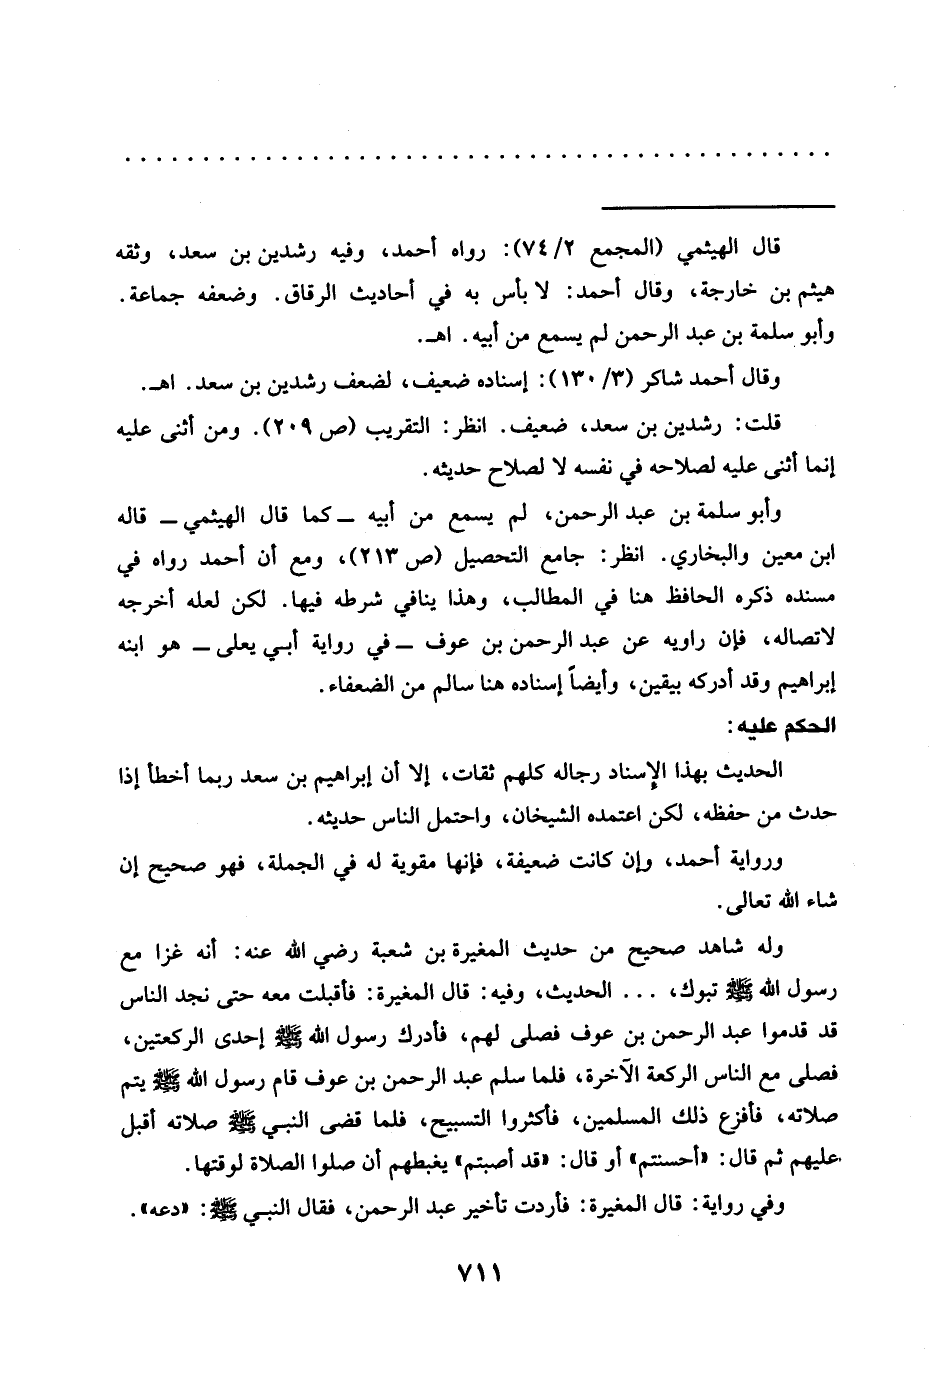 . . . . . . . . . . . . . . . . . . . . . . . . . . . . . . . . . . . . . . . . . . . . . .
قال الهيثمي (المجمع ٢/ ٧٤): رواه أحمد، وفيه رشدين بن سعد، وثقه
هيثم بن خارجة، وقال أحمد: لا بأس به في أحاديث الرقاق. وضعفه جماعة.
وأبو سلمة بن عبد الرحمن لم يسمع من أبيه. اهـ.
وقال أحمد شاكر (٣/ ١٣٠): إسناده ضعيف، لضعف رشدين بن سعد. اهـ.
قلت: رشدين بن سعد، ضعيف. انظر: التقريب (ص ٢٠٩). ومن أثنى عليه
إنما أثنى عليه لصلاحه في نفسه لا لصلاح حديثه.
وأبو سلمة بن عبد الرحمن، لم يسمع من أبيه ــ كما قال الهيثمي ــ قاله
ابن معين والبخاري. انظر: جامع التحصيل (ص ٢١٣)، ومع أن أحمد رواه في
مسنده ذكره الحافظ هنا في المطالب، وهذا ينافي شرطه فيها. لكن لعله أخرجه
لاتصاله، فإن راويه عن عبد الرحمن بن عوف ــ في رواية أبـي يعلى ــ هو ابنه
إبراهيم وقد أدركه بيقين، وأيضاً إسناده هنا سالم من الضعفاء.
الحكم عليه:
الحديث بهذا الإسناد رجاله كلهم ثقات، إلا أن إبراهيم بن سعد ربما أخطأ إذا
حدث من حفظه، لكن اعتمده الشيخان، واحتمل الناس حديثه.
ورواية أحمد، وإن كانت ضعيفة، فإنها مقوية له في الجملة، فهو صحيح إن
شاء الله تعالى.
وله شاهد صحيح من حديث المغيرة بن شعبة رضي الله عنه: أنه غزا مع
رسول الله ﷺ تبوك، ... الحديث، وفيه: قال المغيرة: فأقبلت معه حتى نجد الناس
قد قدموا عبد الرحمن بن عوف فصلى لهم، فأدرك رسول الله ﷺ إحدى الركعتين،
فصلى مع الناس الركعة الآخرة، فلما سلم عبد الرحمن بن عوف قام رسول الله ﷺ يتم
صلاته، فأفزع ذلك المسلمين، فأكثروا التسبيح، فلما قضى النبـي ﷺ صلاته أقبل
عليهم ثم قال: «أحسنتم» أو قال: «قد أصبتم» يغبطهم أن صلوا الصلاة لوقتها.
وفي رواية: قال المغيرة: فأردت تأخير عبد الرحمن، فقال النبـي ﷺ: «دعه».
٧١١